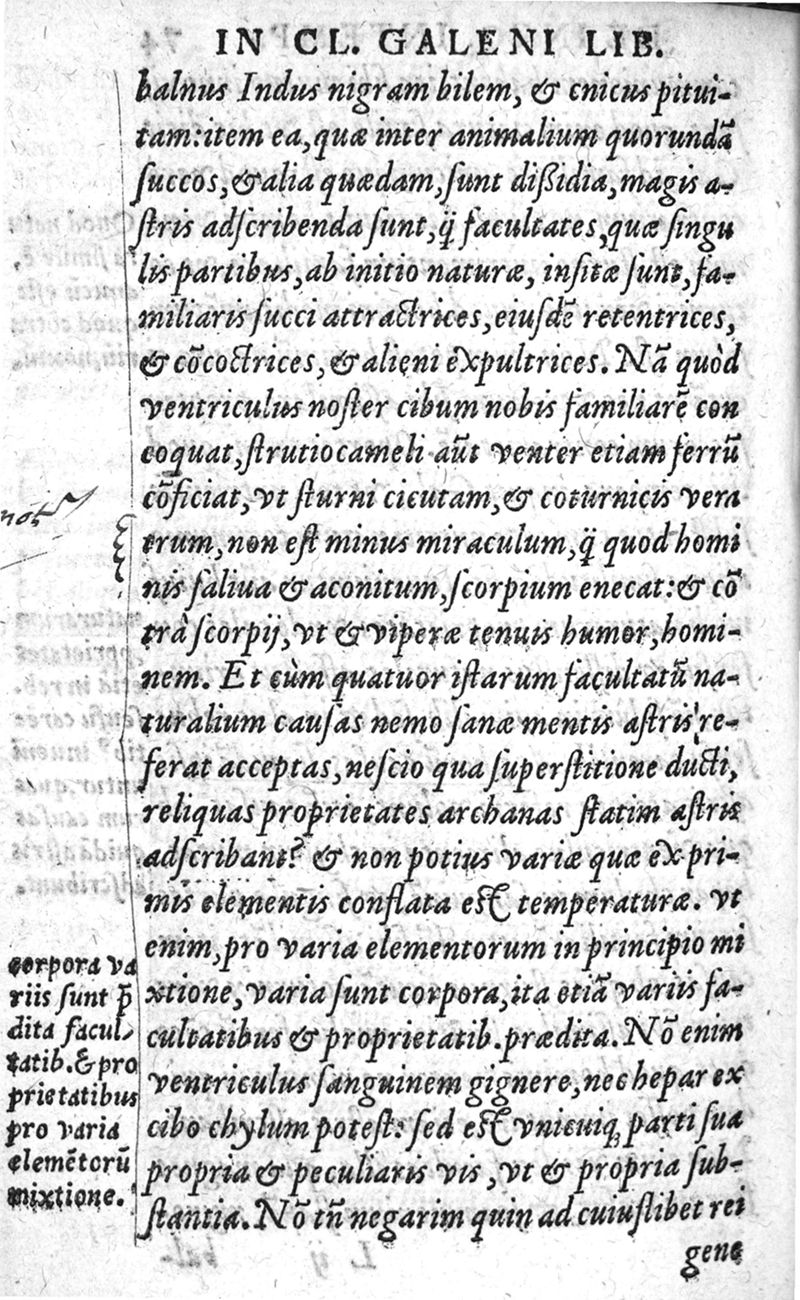 IN CL. GALENI LIB.
balnus Indus nigram bilem, & cnicus pitui-
tam: item ea, quæ inter animalium quorundã
ſuccos, & alia quædam, ſunt dißidia, magis a-
ſtris adſcribenda ſunt, q̃ facultates, quæ ſingu
lis partibus, ab initio naturæ, inſitæ ſunt, fa-
miliaris ſucci attractrices, eiuſdẽ retentrices,
& cõcoctrices, & alieni expultrices. Nã quòd
ventriculus noſter cibum nobis familiarẽ con
coquat, ſtrutiocameli aũt venter etiam ferrũ
cõficiat, vt ſturni cicutam, & coturnicis vera
trum, non eſt minus miraculum, q̃ quod homi
nis ſaliua & aconitum, ſcorpium enecat: & cõ
trà ſcorpij, vt & viperæ tenuis humor, homi-
nem. Et cùm quatuor iſtarum facultatũ na-
turalium cauſas nemo ſanæ mentis aſtris re-
ferat acceptas, neſcio qua ſuperſtitione ducti,
reliquas proprietates archanas ſtatim aſtris
adſcribant? & non potius variæ quæ ex pri-
mis elementis conflata eſt temperaturæ. vt
enim, pro varia elementorum in principio mi
xtione, varia ſunt corpora, ita etiã variis fa-
cultatibus & proprietatib. prædita. Nõ enim
ventriculus ſanguinem gignere, nec hepar ex
cibo chylum poteſt: ſed eſt vnicuiq; parti ſua
propria & peculiaris vis, vt & propria ſub-
ſtantia. Nõ tñ negarim quin ad cuiuſlibet rei
gene
not
corpora va
riis ſunt p̃
dita facul-
tatib. & pro
prietatibus
pro varia
elemẽtorũ
mixtione.